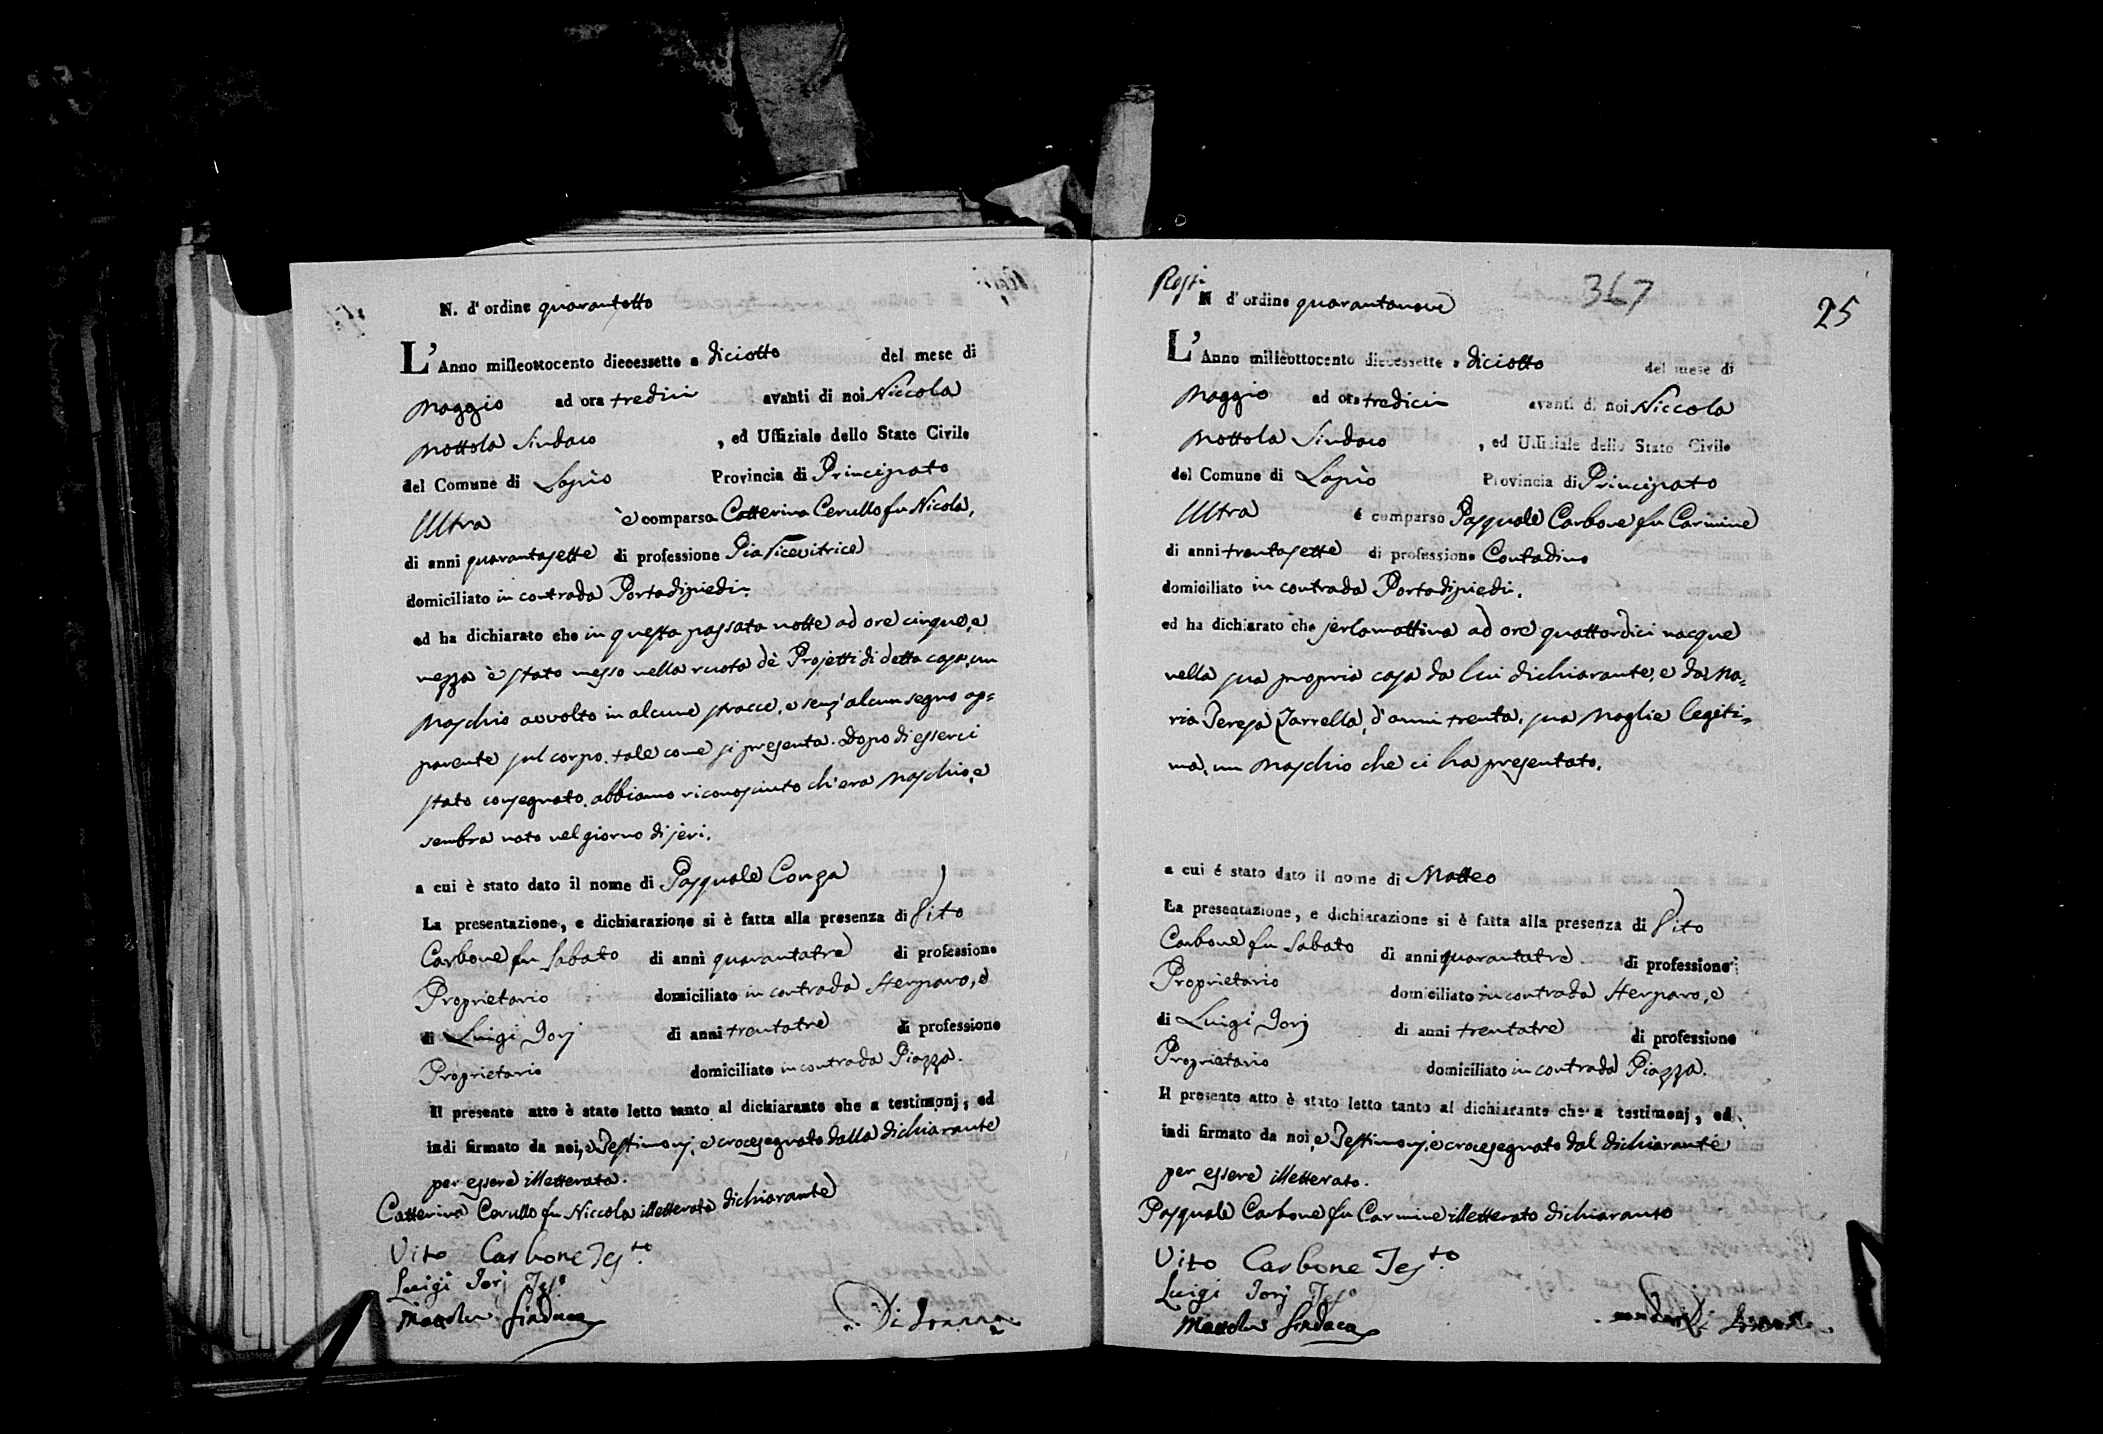 N. d'ordine quarantotto
L'Anno milleottocento diecessette a diciotto del mese di
Maggio ad ora tredici avanti di noi Niccola
Mottola Sindaco , ed Uffiziale dello Stato Civile
del Comune di Lapio Provincia di Principato
Ultra è comparsa Catterina Cerullo fu Nicola,
di anni quarantasette di professione Pia Ricevitrice
domiciliato in contrada Portadipiedi.
ed ha dichiarato che in questa passata notte ad ore cinque, e
mezza è stato messo nella ruota dè Projetti di detta casa, un
Maschio avvolto in alcune stracce, e senz'alcun segno ap=
parente sul corpo, tale come si presenta. Dopo di esserci
stato consegnato, abbiamo riconosciuto ch'era Maschio, e
sembra nato nel giorno di jeri.
a cui è stato dato il nome di Pasquale Conza
La presentazione, e dichiarazione si è fatta alla presenza di Vito
Carbone fu Sabato di anni quarantatre di professione
Proprietario domiciliato in contrada Herparo, e
di Luigi Jorj di anni trentatre di professione
Proprietario domiciliato in contrada Piazza.
Il presente atto è stato letto tanto al dichiarante che a testimonj, ed
indi firmato da noi, e Testimonj, e crocesegnato dalla dichiarante
per essere illetterata.
Catterina Cerullo fu Niccola illetterata dichiarante
Vito Carbone Tes.to
Luigi Jorj Tes.o
Mottola Sindaco
Regi.
367
25
N d'ordine quarantanove
L'Anno milleottocento diecessette a diciotto del mese di
Maggio ad ora tredici avanti di noi Niccola
Mottola Sindaco , ed Uffiziale dello Stato Civile
del Comune di Lapio Provincia di Principato
Ultra é comparso Pasquale Carbone fu Carmine
di anni trentasette di professione Contadino
domiciliato in contrada Portadipiedi.
ed ha dichiarato che jerlamattina ad ore quattordici nacque
nella sua propria casa da lui dichiarante, e da Ma=
ria Teresa Zarrella, d'anni trenta, sua Moglie legiti=
ma, un Maschio che ci ha presentato.
a cui é stato dato il nome di Matteo
La presentazione, e dichiarazione si è fatta alla presenza di Vito
Carbone fu Sabato di anni quarantatre di professione
Proprietario domiciliato in contrada Herparo, e
di Luigi Jorj di anni trentatre di professione
Proprietario domiciliato in contrada Piazza.
Il presente atto è stato letto tanto al dichiarante che a testimonj, ed
indi firmato da noi, e Testimonj, e crocesegnato dal dichiarante
per essere illetterato.
Pasquale Carbone fu Carmine illetterato dichiarante
Vito Carbone Tes.to
Luigi Jorj Tes.o
Mottola Sindaco